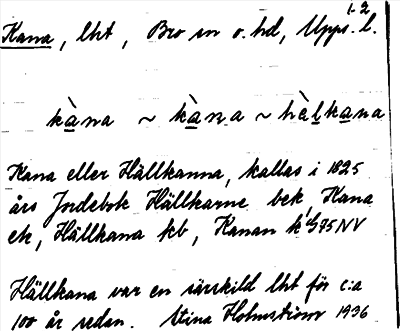 1-2
Kana, lht, Bro sn o. hd, Upps. l.
kàna ~ kàna ~ hàlkana
Kana eller Hällkanna, kallas i 1825
års Jordebok Hällkarne bek, Kana
ek, Hällkana kb, Kanan k 4575 NV
Hällkana var en särskild lht för c:a
100 år sedan. Stina Holmström 1936